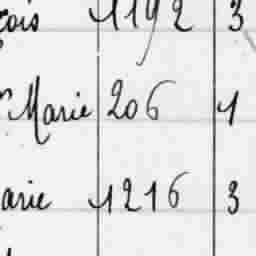 çois 1192 3
Marie 206 1
arie 1216 3